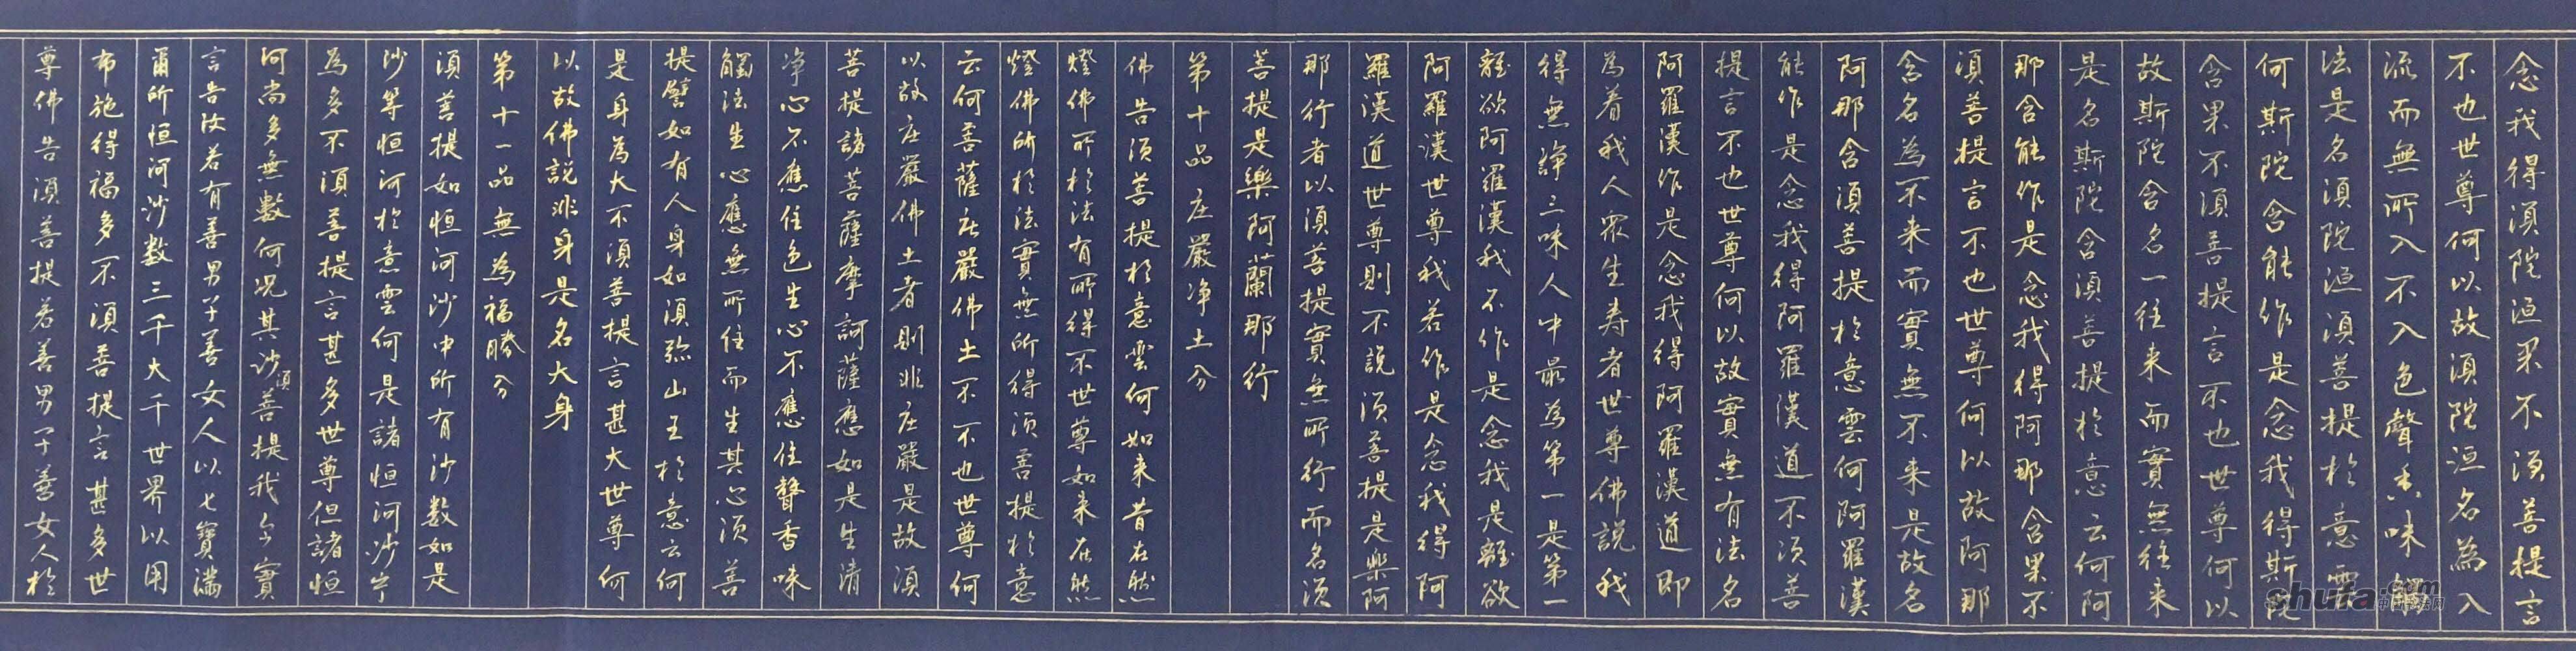 念我得須陀洹果不須菩提言
不也世尊何以故須陀洹名為入
流而無所入不入色聲香味觸
法是名須陀洹須菩提於意雲
何斯陀含能作是念我得斯陀
含果不須菩提言不也世尊何以
故斯陀含名一往来而實無往来
是名斯陀含須菩提於意云何阿
那含能作是念我得阿那含果不
須菩提言不也世尊何以故阿那
含名為不来而實無不来是故名
阿那含須菩提於意雲何阿羅漢
能作是念我得阿羅漢道不須菩
提言不也世尊何以故實無有法名
阿羅漢作是念我得阿羅漢道即
為着我人眾生寿者世尊佛說我
得無諍三味人中最為第一是第一
離欲阿羅漢我不作是念我是離欲
阿羅漢世尊我若作是念我得阿
羅漢道世尊則不說須菩提是樂阿
那行者以須菩提實無所行而名須
菩提是樂阿蘭那行
第十品庄嚴净土分
佛告須菩提於意雲何如来昔在然
燈佛所於法有所得不世尊如来在然
燈佛所於法實無所得須菩提於意
云何菩薩庄嚴佛土不不也世尊何
以故庄嚴佛土者則非庄嚴是故須
菩提諸菩薩摩訶薩應如是生清
净心不應住色生心不應住聲香味
觸法生心應無所住而生其心須菩
提譬如有人身如須弥山王於意云何
是身為大不須菩提言甚大世尊何
以故佛説非身是名大身
第十一品無為福勝分
須菩提如恒河沙中所有沙数如是
沙等恒河於意雲何是諸恒河沙寧
為多不須菩提言甚多世尊但諸恒
河尚多無數何况其沙須菩提我今實
言告汝若有善男子善女人以七寶滿
爾所恒河沙数三千大千世界以用
布施得福多不須菩提言甚多世
尊佛告須菩提若善男子善女人於
shufa.com
中国书法网